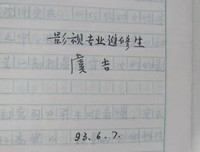 影视专业进修生
虞吉
93.6.7.